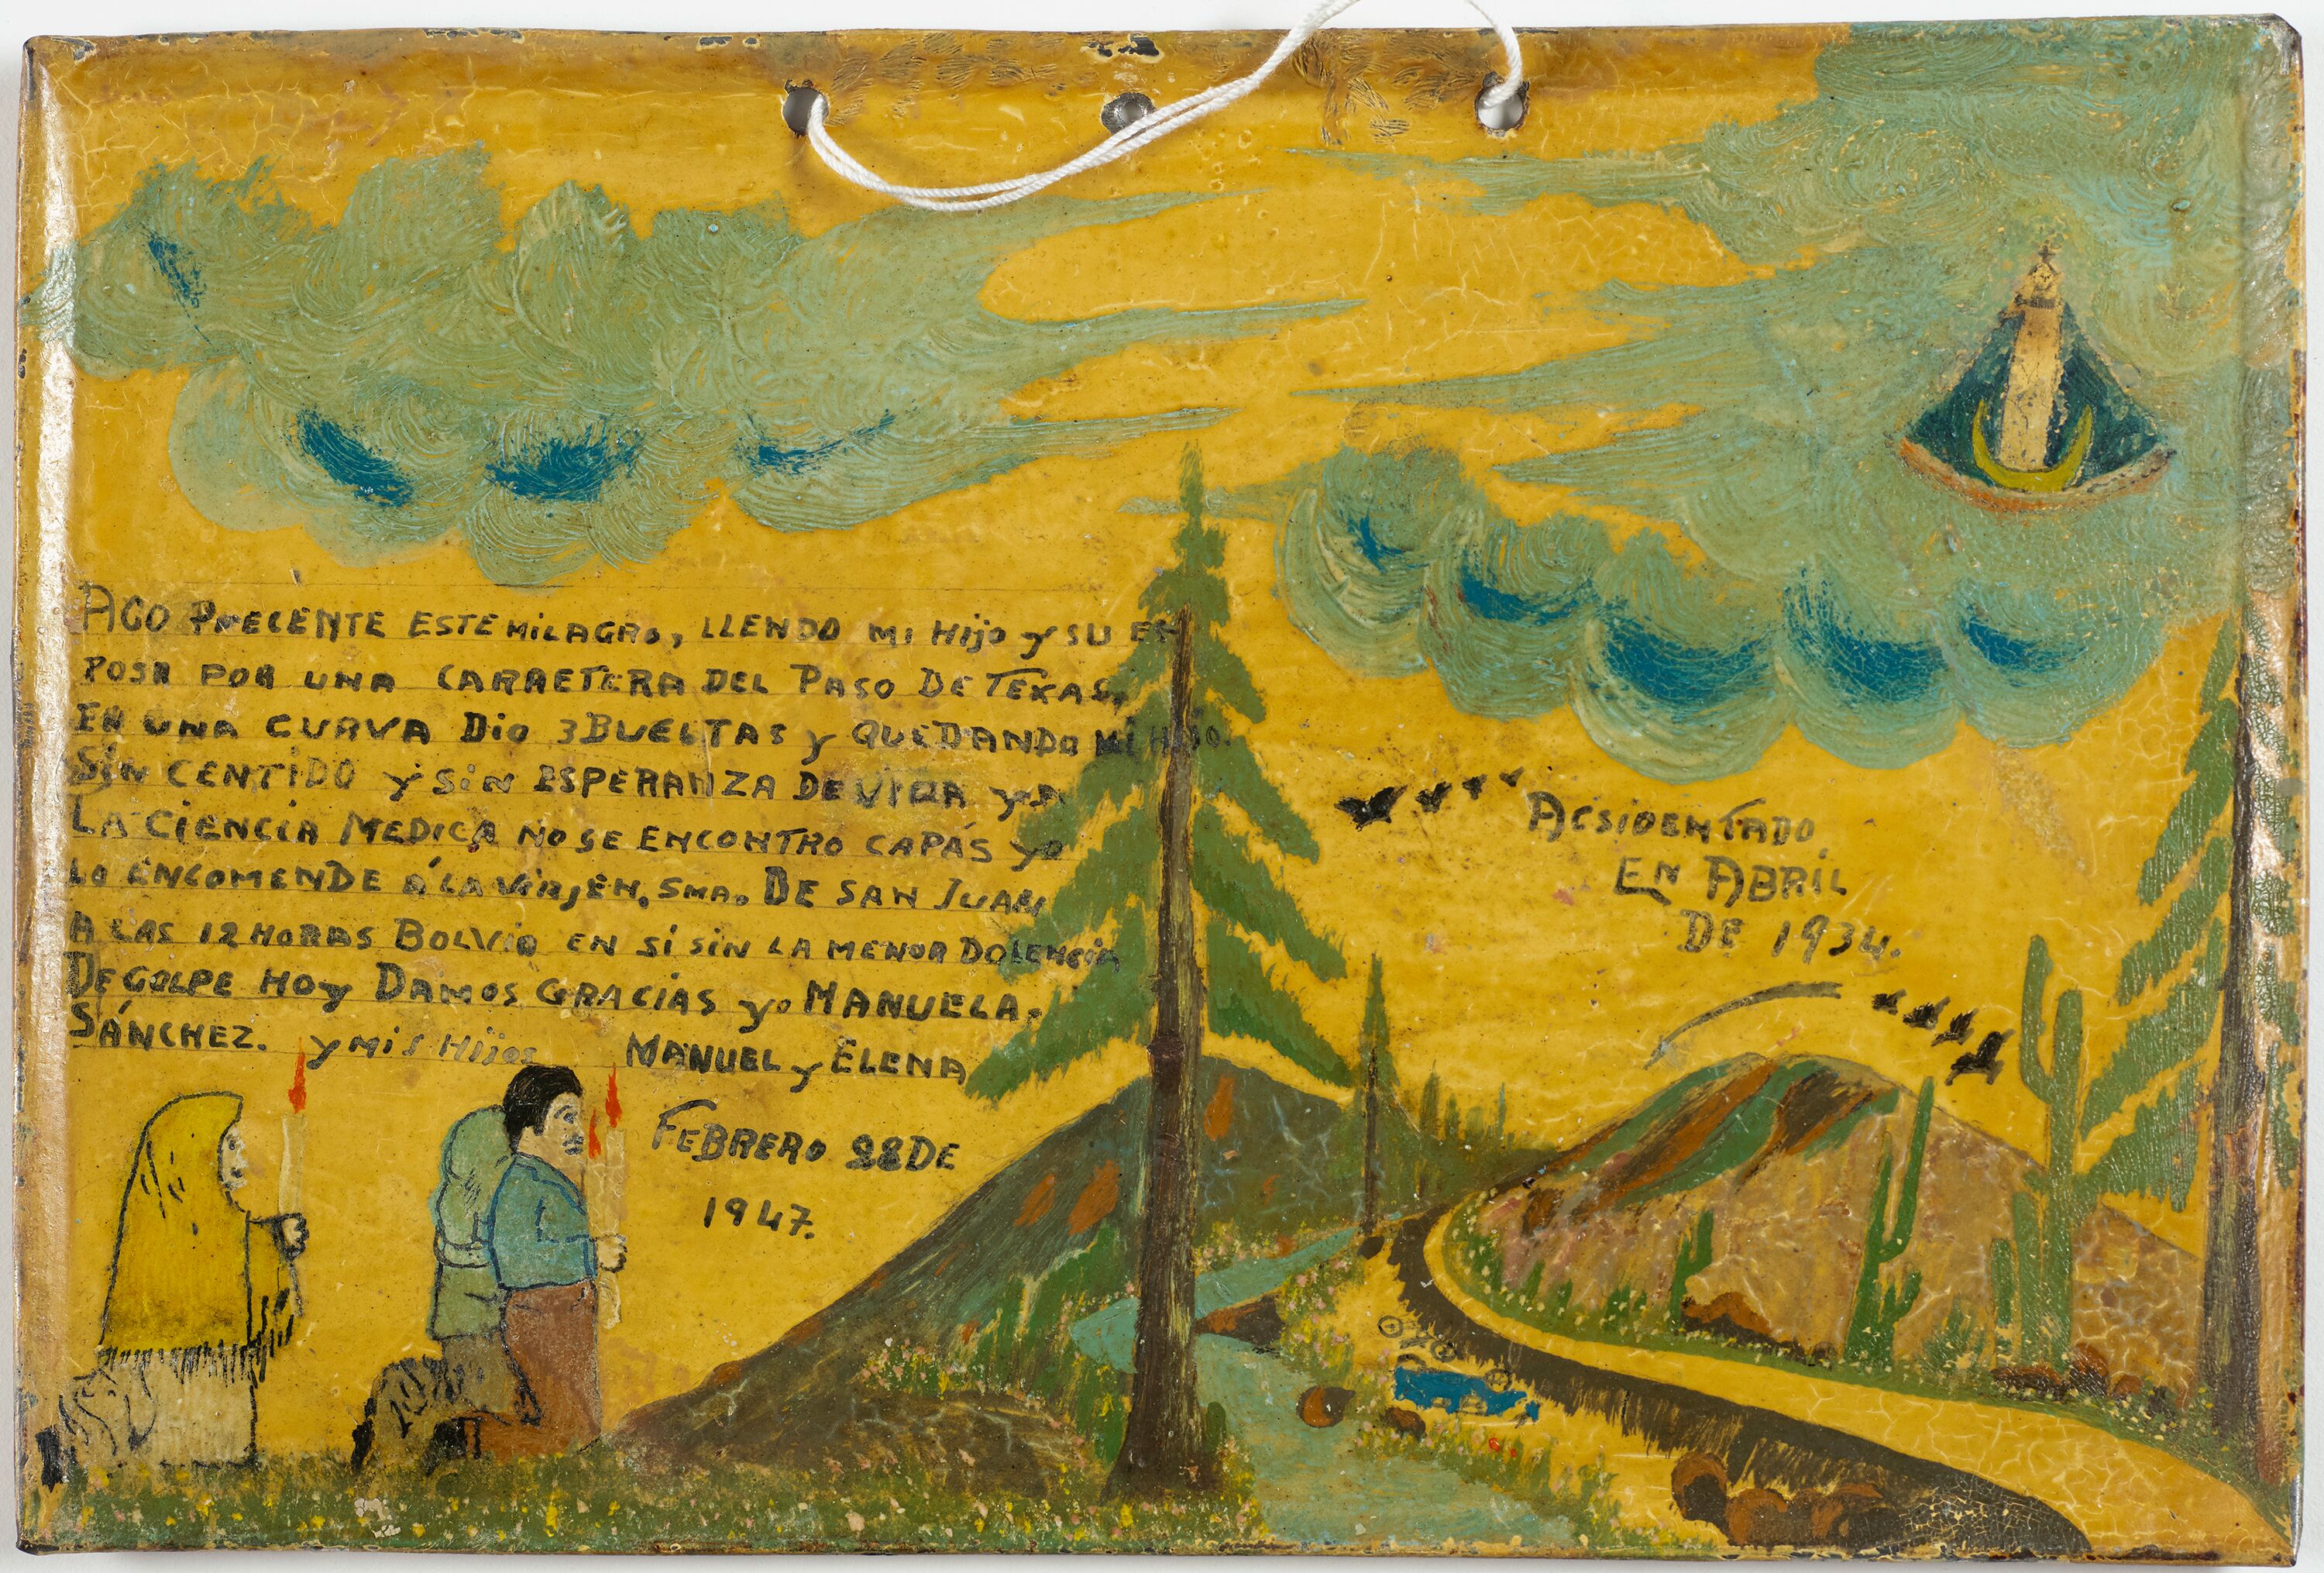 AGO PRECENTE ESTE MILAGRO, LLENDO MI HIJO Y SU ES
POSA POR UNA CARRETERA DEL PASO DE TEXAS,
EN UNA CURVA DIO 3 BUELTAS Y QUEDANDO MI HIJO.
SIN CENTIDO Y SIN ESPERANZA DE VIDA YA
LA CIENCIA MEDICA NO SE ENCONTRO CAPÁS YO
LO ENCOMENDE Á LA VIRJEN. SMA. DE SAN JUAN
A LAS 12 HORAS BOLVIO EN SI SIN LA MENOR DOLENCIA
DE GOLPE HOY DAMOS GRACIAS YO MANUELA.
SÁNCHEZ. Y MIS HIJOS MANUEL Y ELENA
FEBRERO 28 DE
1947.
ACSIDENTADO
EN ABRIL
DE 1934.